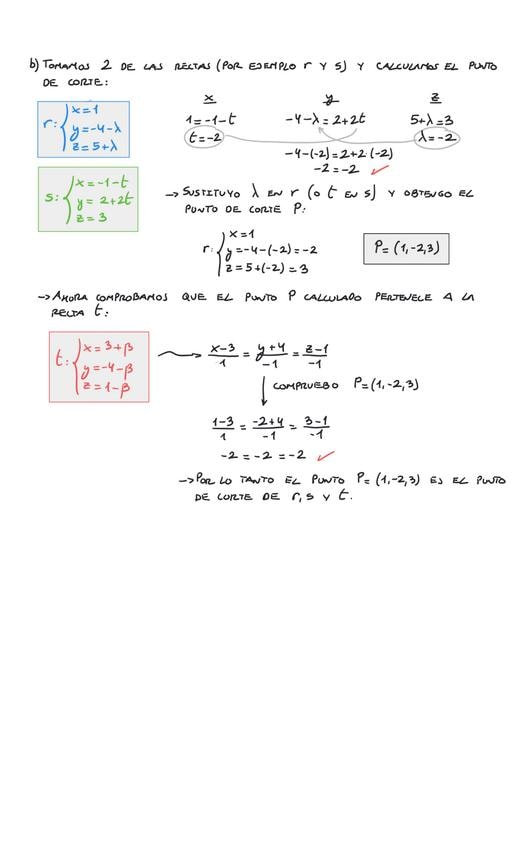 b) TOMAMOS 2 DE LAS RECTAS (POR EJEMPLO r Y s) Y CALCULAMOS EL PUNTO
DE CORTE:
r: { x = 1
y = -4-λ
z = 5+λ
x y z
1 = -1-t -4-λ = 2+2t 5+λ = 3
t = -2 λ = -2
-4-(-2) = 2+2·(-2)
-2 = -2 ✓
s: { x = -1-t
y = 2+2t
z = 3
→ SUSTITUYO λ EN r (O t EN s) Y OBTENGO EL
PUNTO DE CORTE P:
r: { x = 1
y = -4-(-2) = -2
z = 5+(-2) = 3
P = (1,-2,3)
→ AHORA COMPROBAMOS QUE EL PUNTO P CALCULADO PERTENECE A LA
RECTA t:
t: { x = 3+β
y = -4-β
z = 1-β
(x-3)/1 = (y+4)/-1 = (z-1)/-1
COMPRUEBO P = (1,-2,3)
(1-3)/1 = (-2+4)/-1 = (3-1)/-1
-2 = -2 = -2 ✓
→ POR LO TANTO EL PUNTO P = (1,-2,3) ES EL PUNTO
DE CORTE DE r, s Y t.